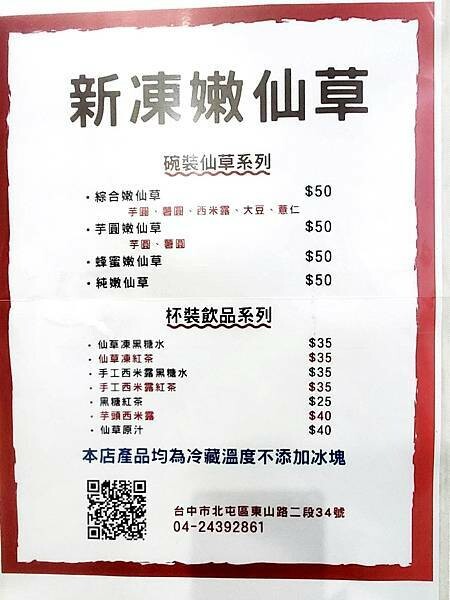 新凍嫩仙草
碗裝仙草系列
・綜合嫩仙草 $50
芋圓、薯圓、西米露、大豆、薏仁
・芋圓嫩仙草 $50
芋圓、薯圓
・蜂蜜嫩仙草 $50
・純嫩仙草 $50
杯裝飲品系列
・仙草凍黑糖水 $35
・仙草凍紅茶 $35
・手工西米露黑糖水 $35
・手工西米露紅茶 $35
・黑糖紅茶 $25
・芋頭西米露 $40
・仙草原汁 $40
本店產品均為冷藏溫度不添加冰塊
台中市北屯區東山路二段34號
04-24392861